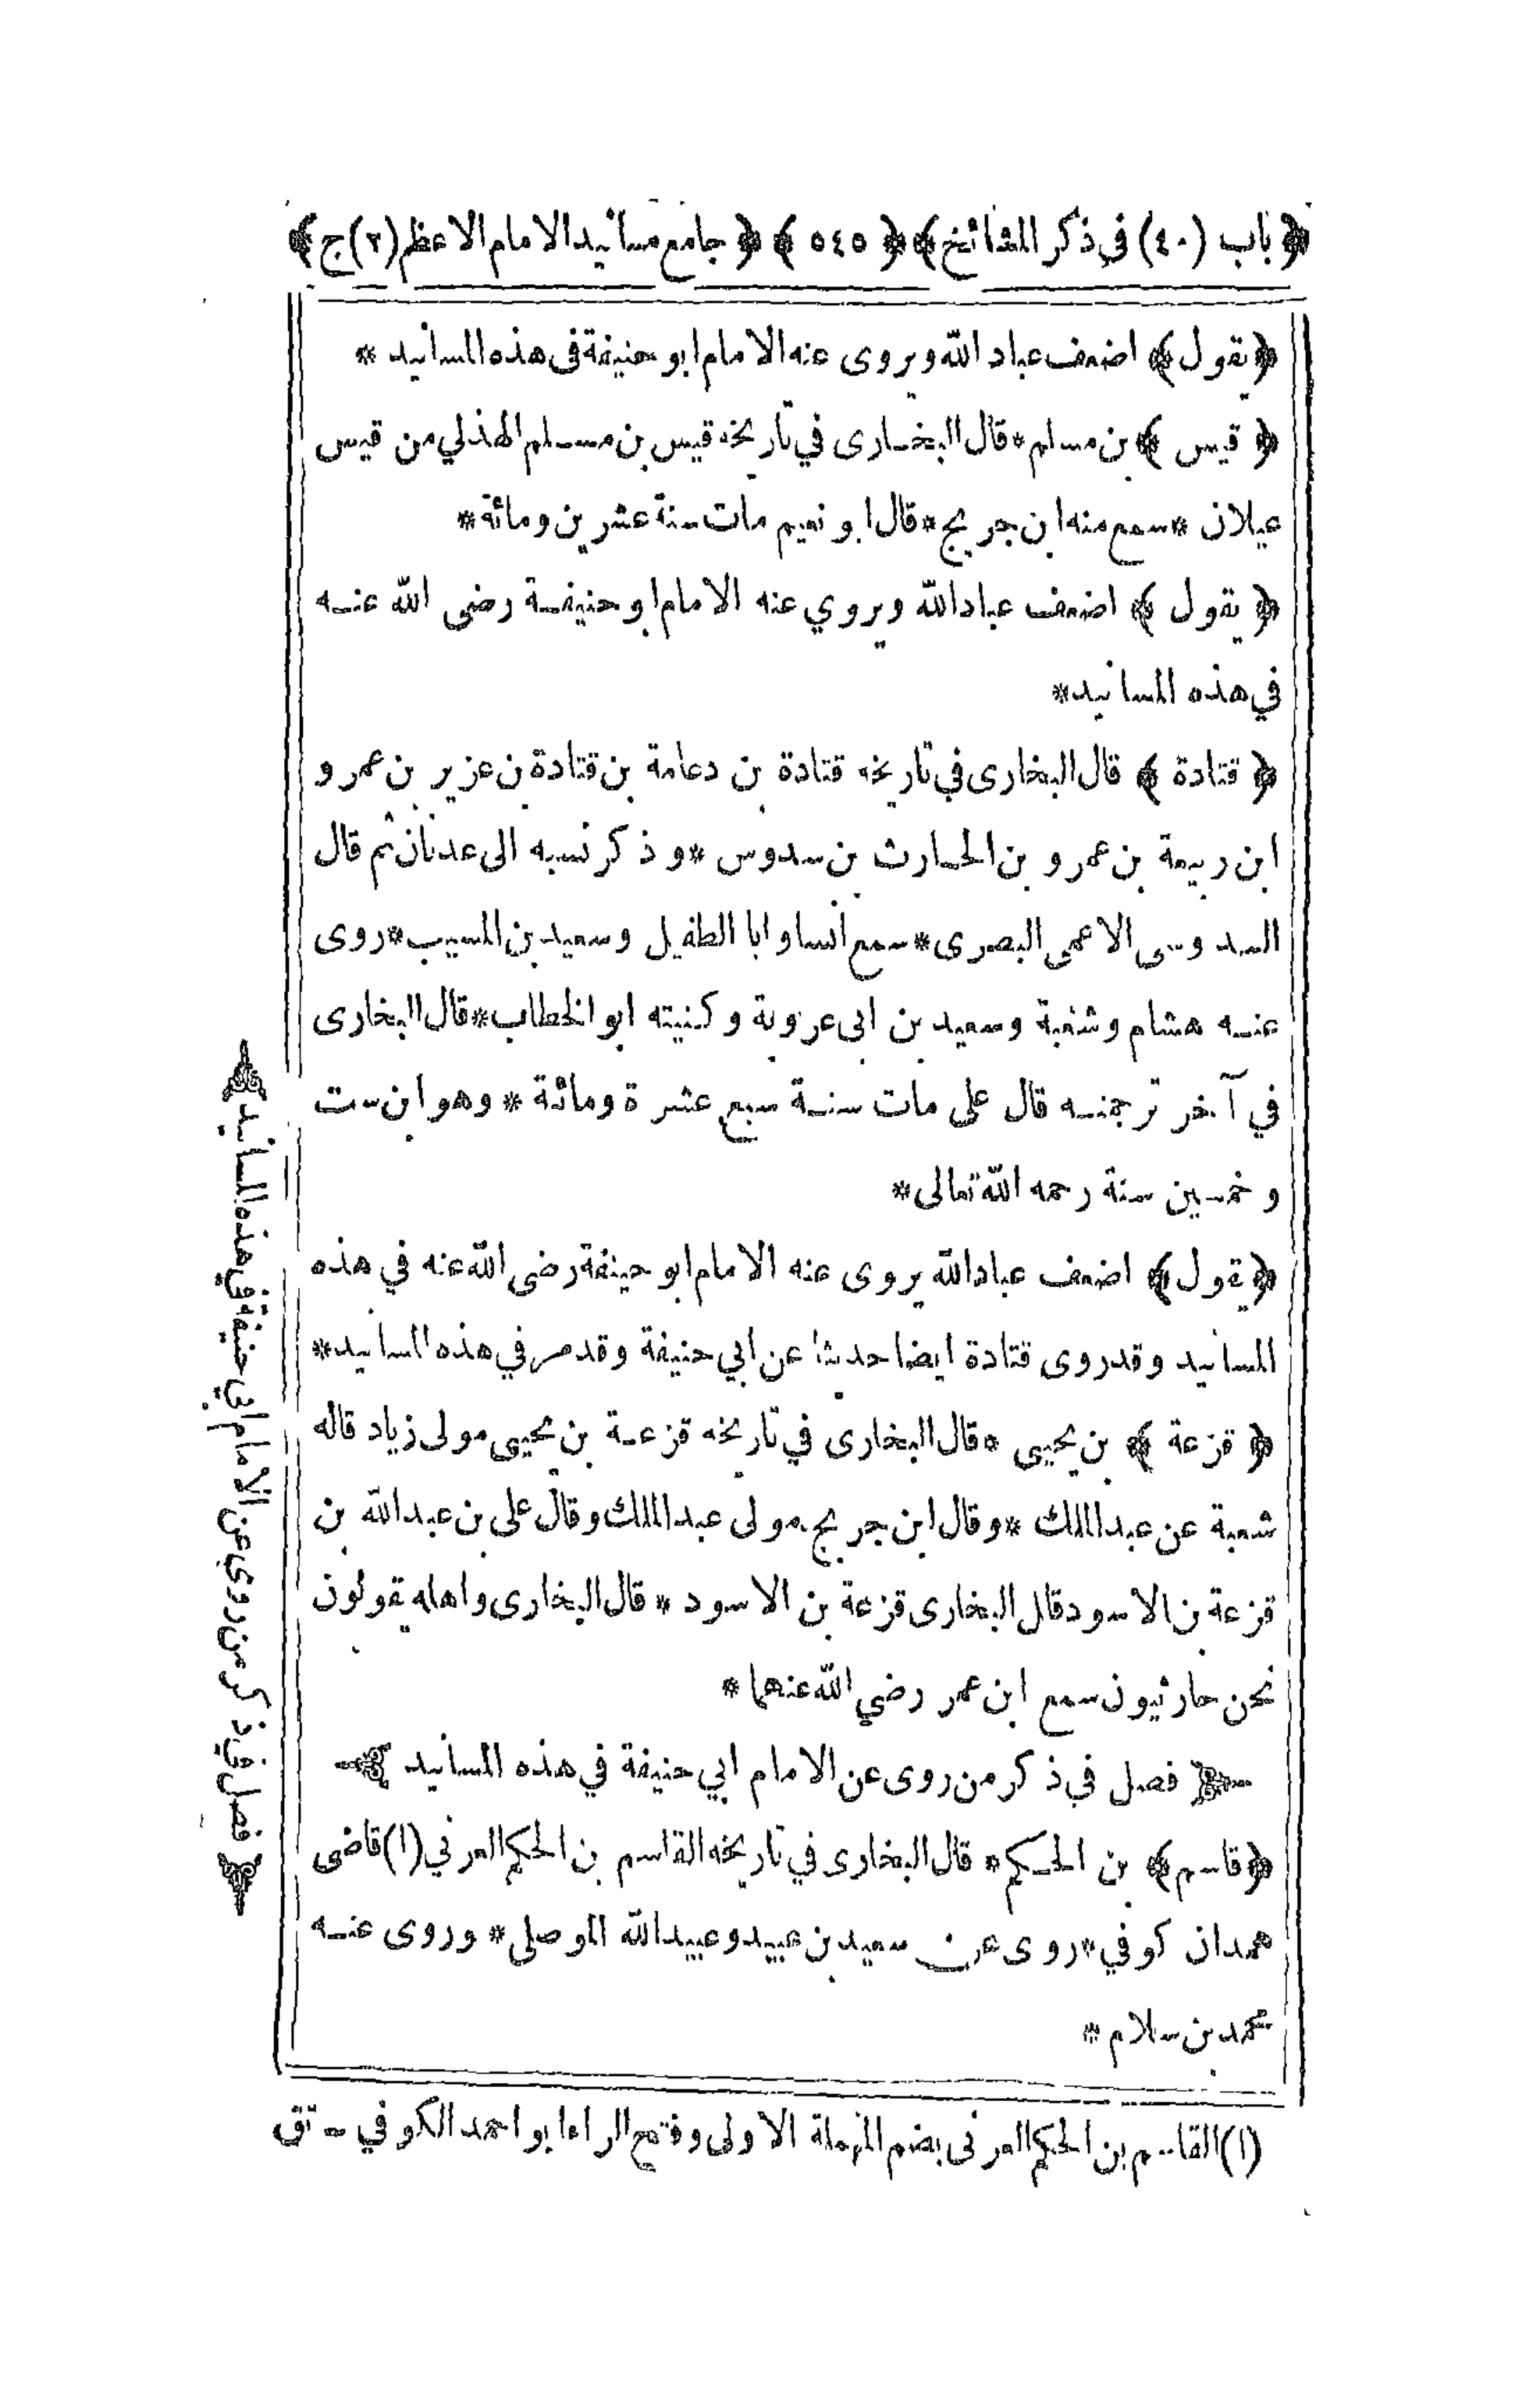 ﴿ باب (٤٠) في ذكر المشائخ ﴾ ﴿ ٥٤٥ ﴾ ﴿ جامع مسانيد الامام الاعظم (٢) ج ﴾
﴿ يقول ﴾ اضعف عباد الله ويروى عنه الامام ابو حنيفة فى هذه المسانيد *
﴿ قيس ﴾ بن مسلم * قال البخارى في تاريخه قيس بن مسلم الهذلي من قيس
عيلان * سمع منه ابن جريج * قال ابو نعيم مات سنة عشرين ومائة *
﴿ يقول ﴾ اضعف عباد الله ويروي عنه الامام ابو حنيفة رضى الله عنه
في هذه المسانيد *
﴿ قتادة ﴾ قال البخارى في تاريخه قتادة بن دعامة بن قتادة بن عزيز بن عمرو
ابن ربيعة بن عمرو بن الحارث بن سدوس * وذكر نسبه الى عدنان ثم قال
السدوسى الاعمى البصرى * سمع انسا وابا الطفيل وسعيد بن المسيب * روى
عنه هشام وشعبة وسعيد بن ابى عروبة وكنيته ابو الخطاب * قال البخارى
في آخر ترجمته قال على مات سنة سبع عشرة ومائة * وهو ابن ست
وخمسين سنة رحمه الله تعالى *
﴿ يقول ﴾ اضعف عباد الله يروى عنه الامام ابو حنيفة رضى الله عنه في هذه
المسانيد وقد روى قتادة ايضا حديثا عن ابي حنيفة وقد مر في هذه المسانيد *
﴿ قزعة ﴾ بن يحيى * قال البخارى في تاريخه قزعة بن يحيى مولى زياد قاله
شعبة عن عبد الملك * وقال ابن جريج مولى عبد الملك وقال على بن عبد الله بن
قزعة بن الاسود قال البخارى قزعة بن الاسود * قال البخارى واهله يقولون
نحن حارثيون سمع ابن عمر رضي الله عنهما *
فصل في ذكر من روى عن الامام ابي حنيفة في هذه المسانيد
﴿ قاسم ﴾ بن الحكم * قال البخارى في تاريخه القاسم بن الحكم العرني (١) قاضى
همدان كوفي * روى عن سعيد بن عبيد وعبيد الله الموصلى * وروى عنه
محمد بن سلام *
(١) القاسم بن الحكم العرنى بضم المهملة الاولى وفتح الراء ابو احمد الكوفي - تق
فصل في ذكر من روي عن الامام ابي حنيفة في هذه المسانيد